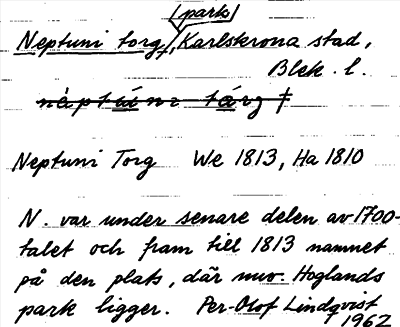 (park)
Neptuni torg, Karlskrona stad,
Blek. l.
Neptuni Torg We 1813, Ha 1810
N. var under senare delen av 1700-
talet och fram till 1813 namnet
på den plats, där nuv. Hoglands
park ligger. Per-Olof Lindqvist
1962